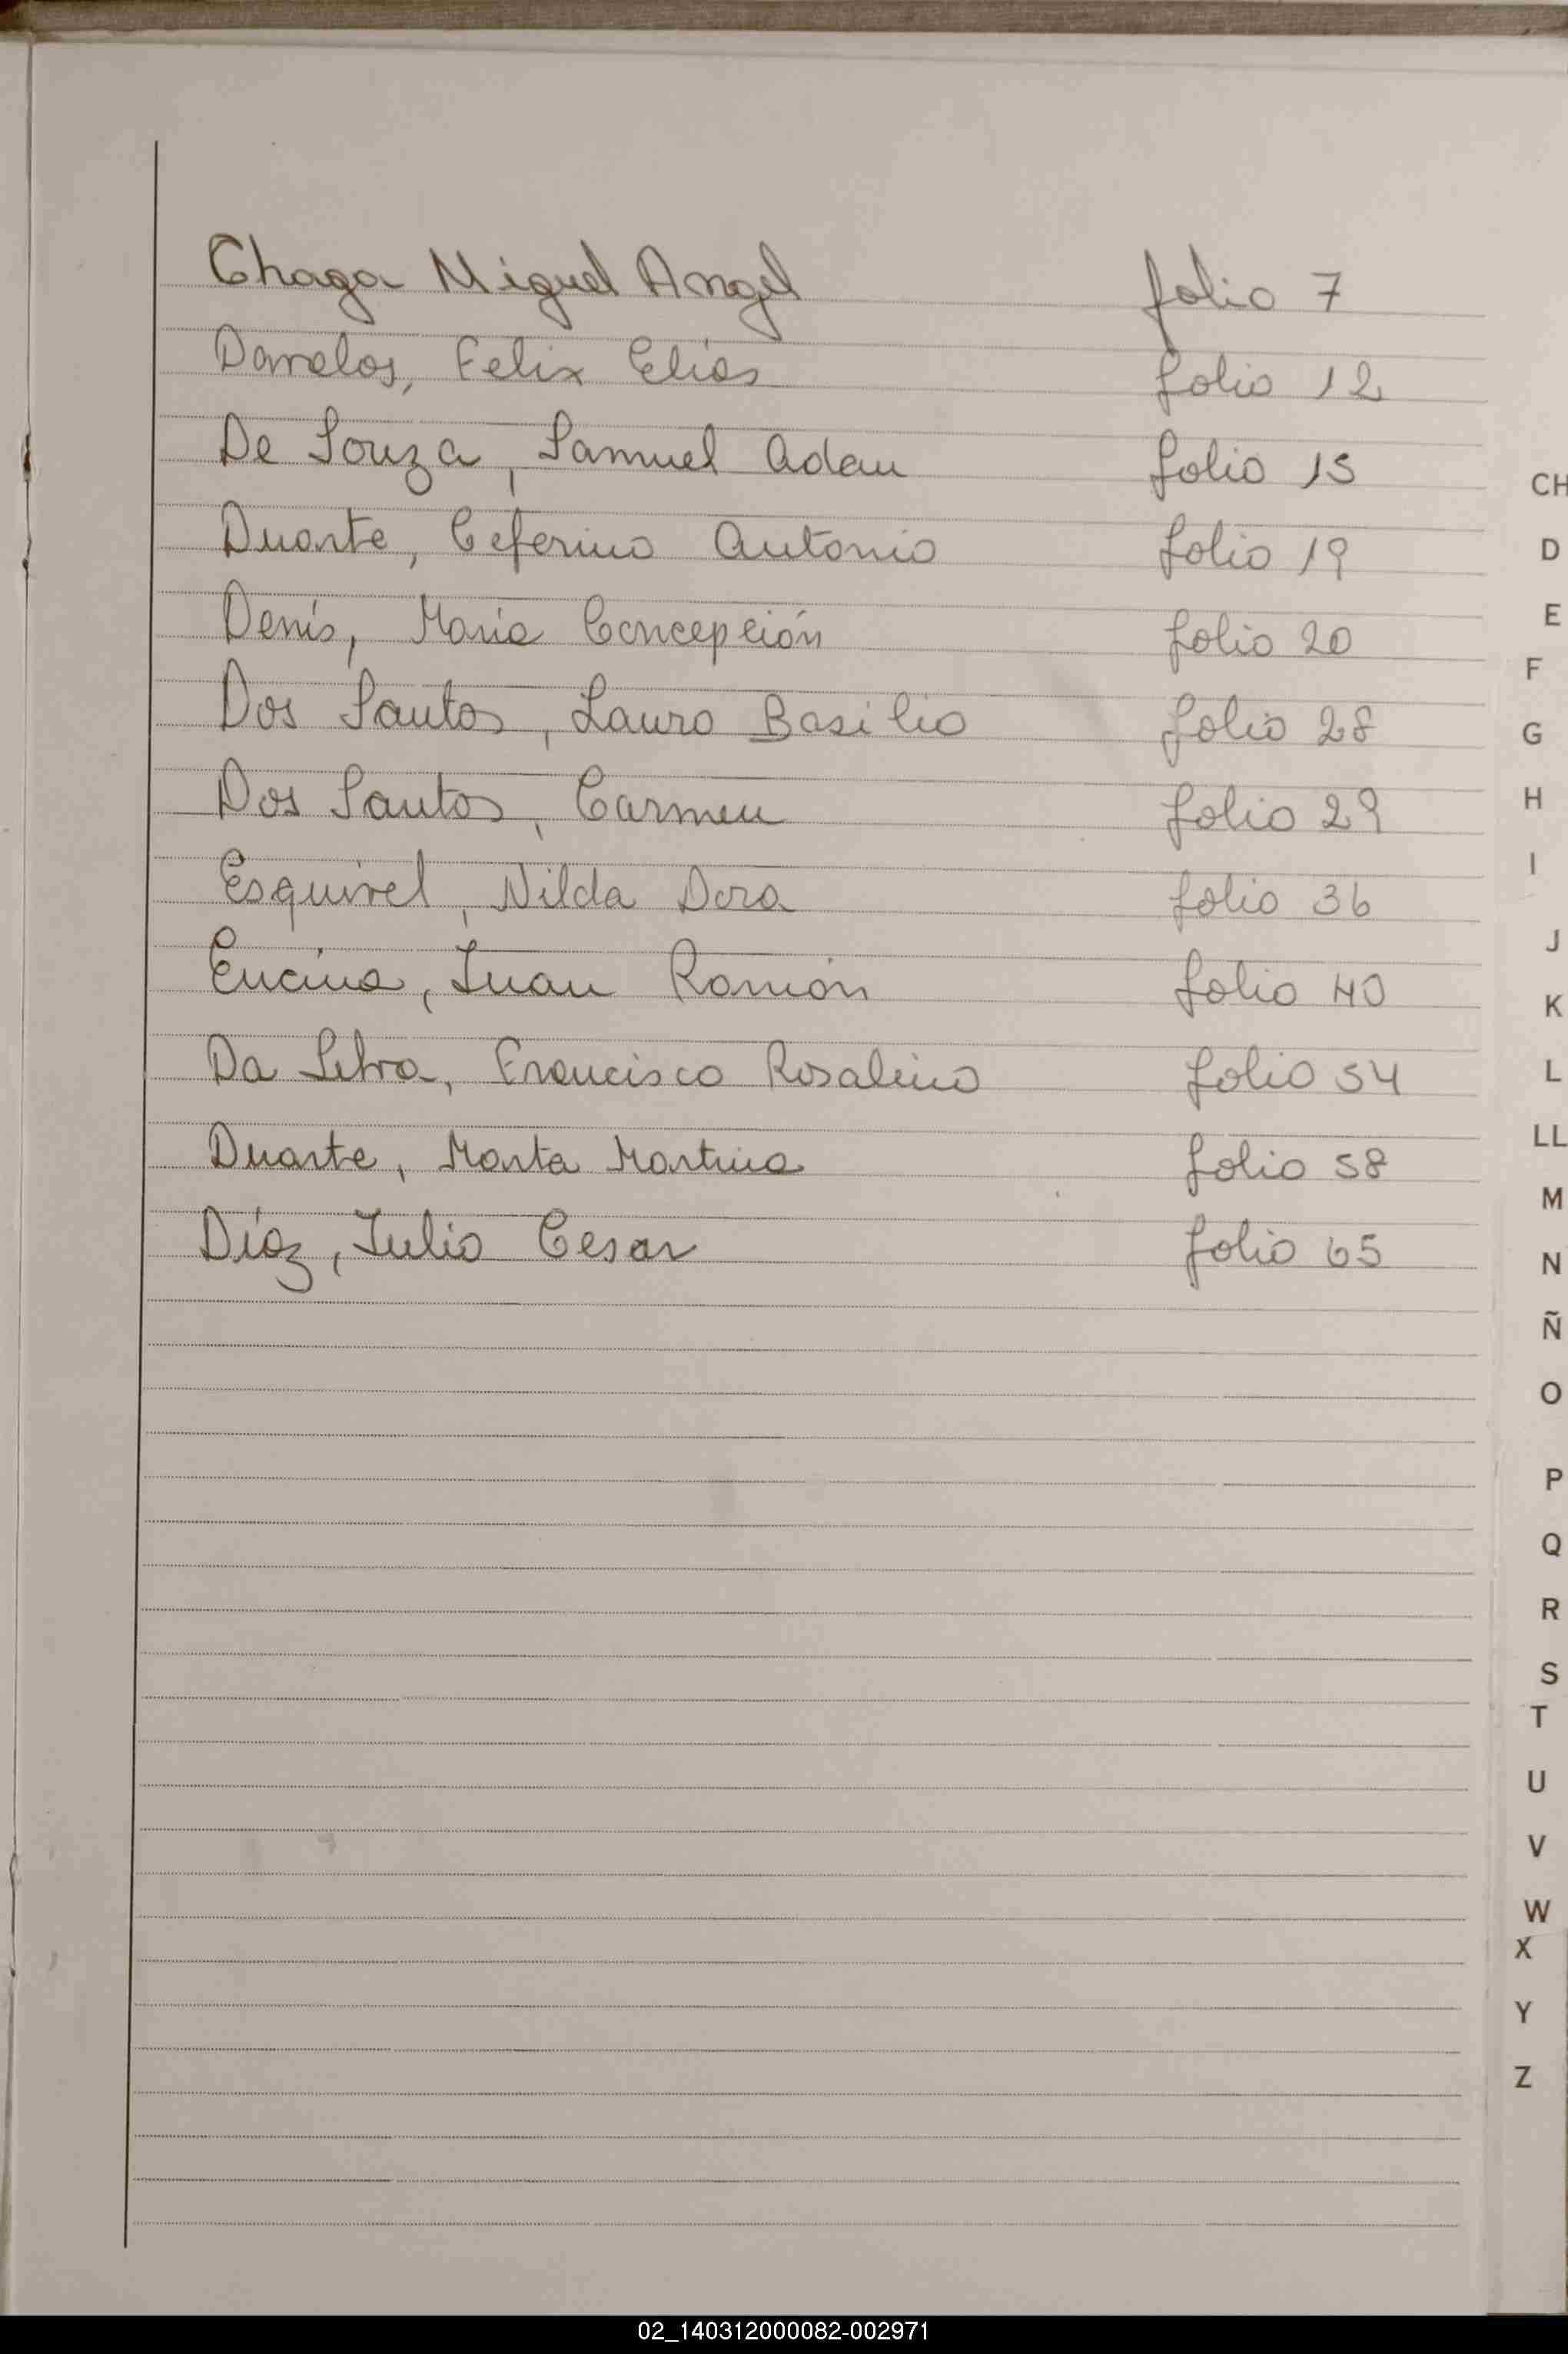 Chaga Miguel Angel folio 7
Davalos, Felix Elias folio 12
De Souza, Samuel Adan folio 15
Duarte, Ceferino Antonio folio 19
Denis, María Concepción folio 20
Dos Santos, Lauro Basilio folio 28
Dos Santos, Carmen folio 29
Esquivel, Nilda Dora folio 36
Encina, Juan Ramón folio 40
Da Silva, Francisco Rosalino folio 54
Duarte, Marta Martina folio 58
Díaz, Julio Cesar folio 65
CH
D
E
F
G
H
I
J
K
L
LL
M
N
Ñ
O
P
Q
R
S
T
U
V
W
X
Y
Z
02_140312000082-002971